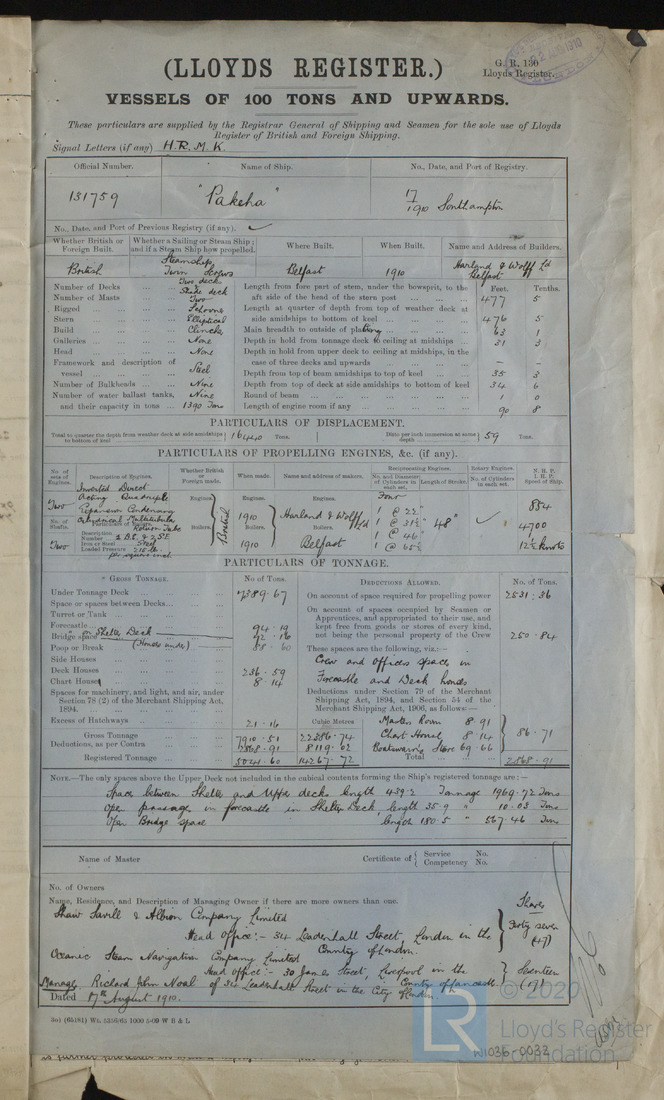 (LLOYDS REGISTER.)
G. R. 130
Lloyds Register.
VESSELS OF 100 TONS AND UPWARDS.
These particulars are supplied by the Registrar General of Shipping and Seamen for the sole use of Lloyds
Register of British and Foreign Shipping.
Signal Letters (if any) H.R.M.K.
Official Number. Name of Ship. No., Date, and Port of Registry.
131759 "Pakeha" 17/1910 Southampton
No., Date, and Port of Previous Registry (if any).
Whether British or Foreign Built. Whether a Sailing or Steam Ship; and if a Steam Ship how propelled. Where Built. When Built. Name and Address of Builders.
British Steamship Twin Screws Belfast 1910 Harland & Wolff Ld Belfast
Number of Decks Two decks Shade deck
Number of Masts Two
Rigged Schooner
Stern Elliptical
Build Clincher
Galleries None
Head None
Framework and description of vessel Steel
Number of Bulkheads Nine
Number of water ballast tanks, Nine
and their capacity in tons 1390 Tons
Feet. Tenths.
Length from fore part of stem, under the bowsprit, to the
aft side of the head of the stern post 477 5
Length at quarter of depth from top of weather deck at
side amidships to bottom of keel 476 5
Main breadth to outside of plating 63 1
Depth in hold from tonnage deck to ceiling at midships 31 3
Depth in hold from upper deck to ceiling at midships, in the
case of three decks and upwards – –
Depth from top of beam amidships to top of keel 35 3
Depth from top of deck at side amidships to bottom of keel 34 6
Round of beam 1 0
Length of engine room if any 90 8
PARTICULARS OF DISPLACEMENT.
Total to quarter the depth from weather deck at side amidships to bottom of keel 16440 Tons. Ditto per inch immersion at same depth 59 Tons.
PARTICULARS OF PROPELLING ENGINES, &c. (if any).
No. of sets of Engines. Description of Engines. Whether British or Foreign made. When made. Name and address of makers. Reciprocating Engines. Rotary Engines. N.H.P. I.H.P. Speed of Ship.
No. and Diameter of Cylinders in each set. Length of Stroke. No. of Cylinders in each set.
Two Inverted Direct Acting Quadruple Expansion Condensing
Engines. British Engines. 1910 Engines. Harland & Wolff Ld
Four
1 @ 22"
1 @ 31½"
1 @ 46"
1 @ 65½"
48"
884
4700
12½ knots
No. of Shafts. Particulars of Boilers.
Two Cylindrical Multitubular Return Tube
Description
Number 2 D.E. & 2 S.E.
Iron or Steel Steel
Loaded Pressure 215 lb. per square inch
Boilers. Boilers. 1910 Boilers. Belfast
PARTICULARS OF TONNAGE.
GROSS TONNAGE. No. of Tons.
Under Tonnage Deck 7389.67
Space or spaces between Decks
Turret or Trunk
Forecastle 94.19
Bridge space on Shelter Deck 42.16
Poop or Break (Houses under) 58.60
Side Houses
Deck Houses 236.59
Chart House 8.14
Spaces for machinery, and light, and air, under
Section 78 (2) of the Merchant Shipping Act,
1894.
Excess of Hatchways 21.16
Cubic Metres
Gross Tonnage 7910.51 22386.74
Deductions, as per Contra 2868.91 8119.02
Registered Tonnage 5041.60 14267.72
DEDUCTIONS ALLOWED. No. of Tons.
On account of space required for propelling power 2531.36
On account of spaces occupied by Seamen or
Apprentices, and appropriated to their use, and
kept free from goods or stores of every kind,
not being the personal property of the Crew 250.84
These spaces are the following, viz.:—
Crew and officers space in
Forecastle and Deck houses
Deductions under Section 79 of the Merchant
Shipping Act, 1894, and Section 54 of the
Merchant Shipping Act, 1906, as follows:—
Masters Room 8.91
Chart House 8.14
Boatswains Store 69.66
86.71
Total 2868.91
NOTE.—The only spaces above the Upper Deck not included in the cubical contents forming the Ship's registered tonnage are:—
Space between Shelter and Upper decks length 439.2 Tonnage 1969.72 Tons
Open passage in forecastle in Shelter Deck length 35.9 " 10.03 Tons
Open Bridge space length 180.5 " 567.46 Tons
Name of Master Certificate of Service No. Competency No.
No. of Owners
Name, Residence, and Description of Managing Owner if there are more owners than one.
Shares
Shaw Savill & Albion Company Limited
Head Office:- 34 Leadenhall Street, London in the
County of London.
Forty seven (47)
Oceanic Steam Navigation Company Limited
Head office:- 30 James Street, Liverpool in the
County of Lancaster
Seventeen (17)
Manager, Richard John Noal of 34 Leadenhall Street in the City of London
Dated 17th August 1910.
3o) (65181) Wt. 5358/63 1000 5-09 W B & L
LR
© 2020
Lloyd's Register
Foundation
W1036-0032